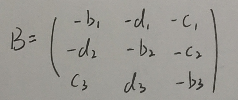 B = ( -b₁ -d₁ -c₁
-d₂ -b₂ -c₂
c₃ d₃ -b₃ )